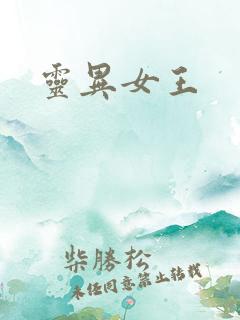 靈異女王
柴勝松
未任同意禁止转载